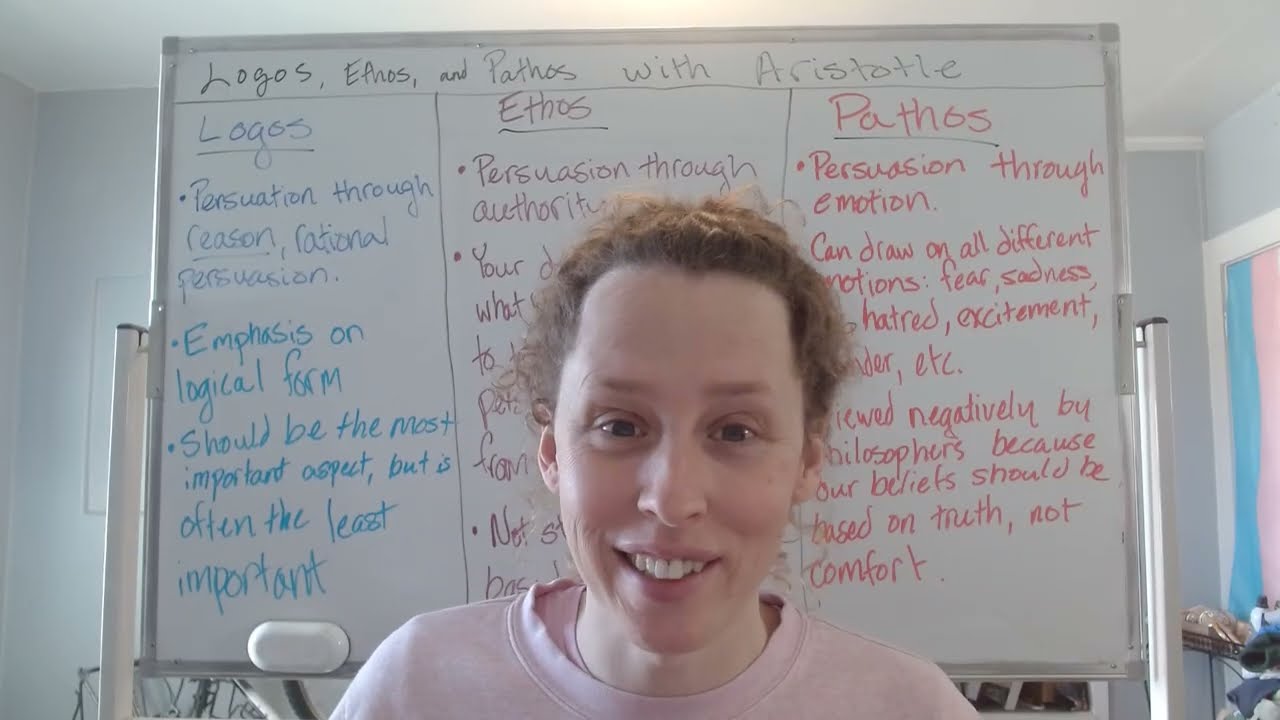 Logos, Ethos, and Pathos with Aristotle
Logos
• Persuation through
reason, rational
persuasion.
• Emphasis on
logical form
• Should be the most
important aspect, but is
often the least
important
Ethos
• Persuasion through
authority
• Your
what
to
from
• Not
Pathos
• Persuasion through
emotion.
Can draw on all different
emotions: fear, sadness,
hatred, excitement,
etc.
viewed negatively by
philosophers because
our beliefs should be
based on truth, not
comfort.